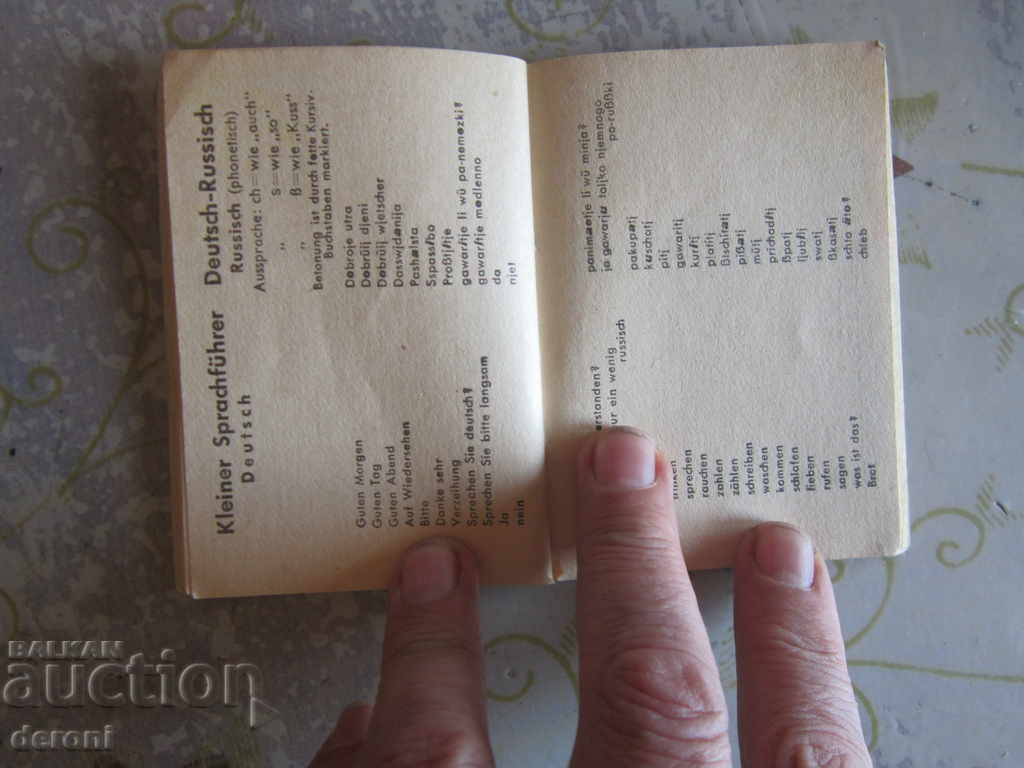 Kleiner Sprachführer Deutsch-Russisch
Deutsch Russisch (phonetisch)
Aussprache: ch=wie „auch"
„ s=wie „so"
„ ß=wie „Kuss"
Betonung ist durch fette Kursiv-
Buchstaben markiert.
Guten Morgen Dobroje utra
Guten Tag Dobrülj djeni
Guten Abend Dobrülj wjetscher
Auf Wiedersehen Dasswjdanija
Bitte Pashalsta
Danke sehr Sspassibo
Verzeihung Proßtitje
Sprechen Sie deutsch? gawaritje li wü pa-nemezki?
Sprechen Sie bitte langsam gawaritje medlenno
Ja da
nein njet
erstanden? panimaetje li wü minja?
ur ein wenig ja gawarju toljko njemnogo
russisch pa-rußßki
pakupatj
kuschatj
pitj
sprechen gawaritj
rauchen kuritj
zahlen platitj
zählen ßtschitatj
schreiben pißatj
waschen mütj
kommen prichaditj
schlafen ßpatj
lieben ljubitj
rufen swatj
sagen ßkasatj
was ist das? schto äto?
Brot chleb
BALKAN
auction
deroni